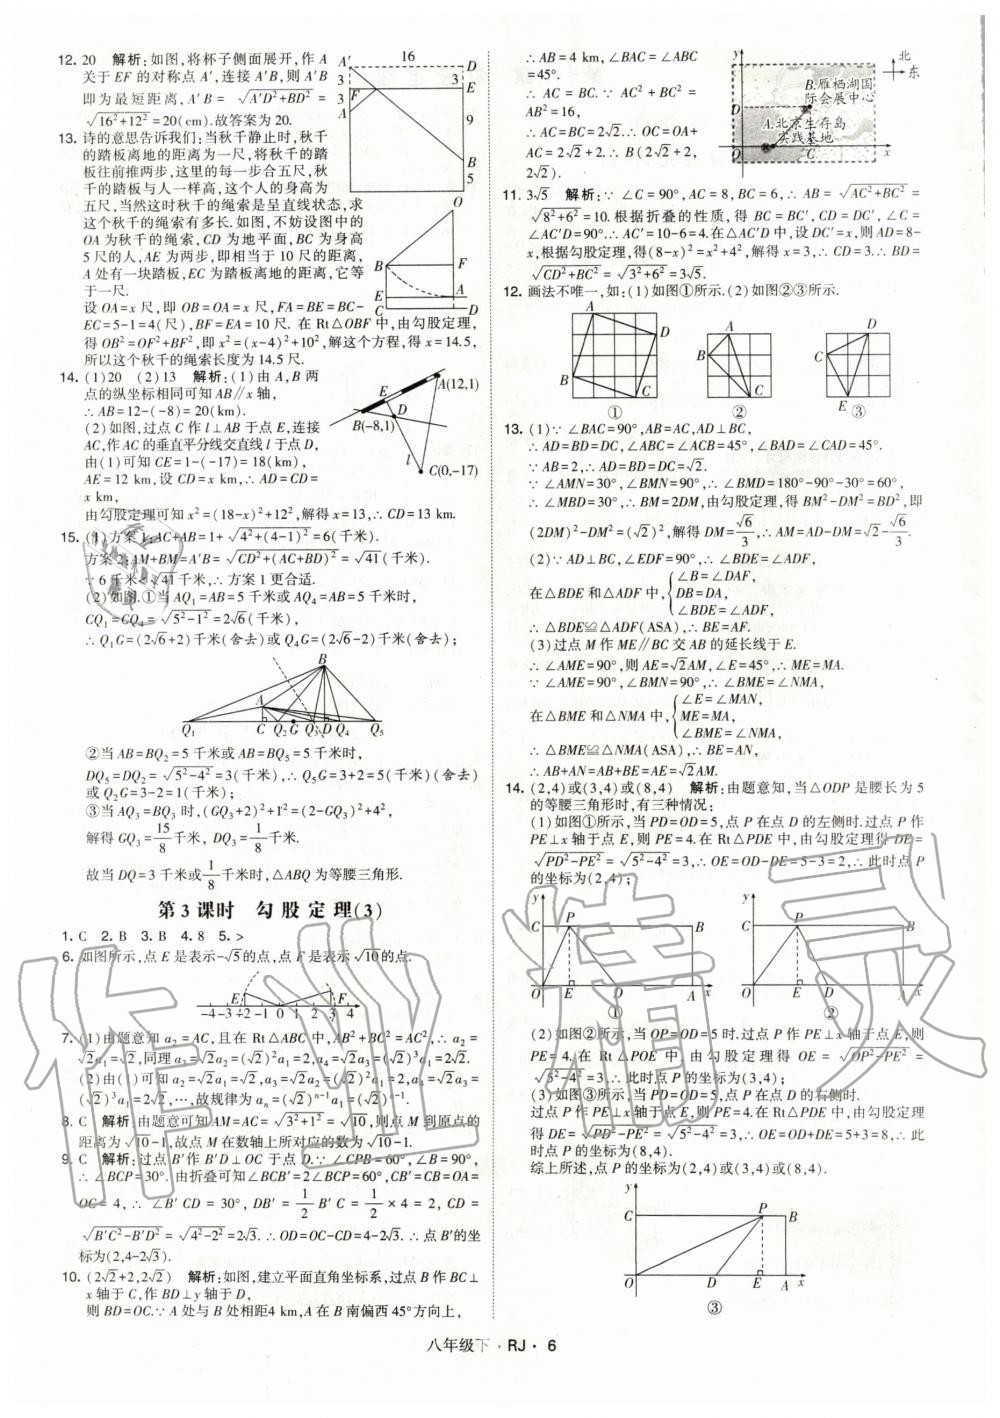 12. 20　解析:如图,将杯子侧面展开,作A
关于EF的对称点A′,连接A′B,则A′B
即为最短距离,A′B=√(A′D²+BD²)=
√(16²+12²)=20(cm).故答案为20.
16
A′
D
3
3
F
E
3
A
9
B
5
13. 诗的意思告诉我们:当秋千静止时,秋千
的踏板离地的距离为一尺,将秋千的踏
板往前推两步,这里的每一步合五尺,秋
千的踏板与人一样高,这个人的身高为
五尺,当然这时秋千的绳索是呈直线状态,求
这个秋千的绳索有多长.如图,不妨设图中的
OA为秋千的绳索,CD为地平面,BC为身高
5尺的人,AE为两步,即相当于10尺的距离,
A处有一块踏板,EC为踏板离地的距离,它等
于一尺.
设OA=x尺,即OB=OA=x尺,FA=BE=BC-
EC=5-1=4(尺),BF=EA=10尺. 在Rt△OBF中,由勾股定理,
得OB²=OF²+BF²,即x²=(x-4)²+10²,解这个方程,得x=14.5,
所以这个秋千的绳索长度为14.5尺.
O
B
F
E
A
C
D
14. (1)20　(2)13　解析:(1)由A,B两
点的纵坐标相同可知AB∥x轴,
∴AB=12-(-8)=20(km).
(2)如图,过点C作l⊥AB于点E,连接
AC,作AC的垂直平分线交直线l于点D,
由(1)可知CE=1-(-17)=18(km),
AE=12 km,设CD=x km,∴AD=CD=
x km,
由勾股定理可知x²=(18-x)²+12²,解得x=13,∴CD=13 km.
E
A(12,1)
D
B(-8,1)
l
C(0,-17)
15. (1)方案1:AC+AB=1+√(4²+(4-1)²)=6(千米).
方案2:AM+BM=A′B=√(CD²+(AC+BD)²)=√41(千米).
∵6千米<√41千米,∴方案1更合适.
(2)如图.①当AQ₁=AB=5千米或AQ₄=AB=5千米时,
CQ₁=CQ₄=√(5²-1²)=2√6(千米),
∴Q₁G=(2√6+2)千米(舍去)或Q₄G=(2√6-2)千米(舍去);
B
A
Q₁
C Q₂G Q₃D Q₄ Q₅
②当AB=BQ₂=5千米或AB=BQ₅=5千米时,
DQ₅=DQ₂=√(5²-4²)=3(千米),∴Q₅G=3+2=5(千米)(舍去)
或Q₂G=3-2=1(千米);
③当AQ₃=BQ₃时,(GQ₃+2)²+1²=(2-GQ₃)²+4²,
解得GQ₃=15/8千米, DQ₃=1/8千米.
故当DQ=3千米或1/8千米时,△ABQ为等腰三角形.
第3课时　勾股定理(3)
1. C　2. B　3. B　4. 8　5. >
6. 如图所示,点E是表示-√5的点,点F是表示√10的点.
E
F
-4-3-2-1 0 1 2 3 4
7. (1)由题意知a₂=AC,且在Rt△ABC中,AB²+BC²=AC²,∴a₂=
√2a₁=√2,同理a₃=√2a₂=(√2)²a₁=2,a₄=√2a₃=(√2)³a₁=2√2.
(2)由(1)可知a₂=√2a₁=√2,a₃=√2a₂=(√2)²a₁=2,a₄=√2a₃=
(√2)³a₁=2√2,…,故规律为aₙ=(√2)ⁿ⁻¹a₁=(√2)ⁿ⁻¹.
8. C　解析:由题意可知AM=AC=√(3²+1²)=√10,则点M到原点的
距离为√10-1,故点M在数轴上所对应的数为√10-1.
9. C　解析:过点B′作B′D⊥OC于点D.∵∠CPB=60°,∠B=90°,
∴∠BCP=30°.由折叠可知∠BCB′=2∠BCP=60°,CB′=CB=OA=
OC=4,∴∠B′CD=30°,DB′=1/2B′C=1/2×4=2,CD=
√(B′C²-B′D²)=√(4²-2²)=2√3.∴OD=OC-CD=4-2√3.∴点B′的坐
标为(2,4-2√3).
10. (2√2+2,2√2)　解析:如图,建立平面直角坐标系,过点B作BC⊥
x轴于C,作BD⊥y轴于D,
则BD=OC.∵A处与B处相距4 km,A在B南偏西45°方向上,
∴AB=4 km,∠BAC=∠ABC
=45°.
∴AC=BC.∵AC²+BC²=
AB²=16,
∴AC=BC=2√2.∴OC=OA+
AC=2√2+2.∴B(2√2+2,
2√2).
y
北
东
B.雁栖湖国
际会展中心
D
A.北京生存岛
实践基地
O
C
x
11. 3√5　解析:∵∠C=90°,AC=8,BC=6,∴AB=√(AC²+BC²)=
√(8²+6²)=10.根据折叠的性质,得BC=BC′,CD=DC′,∠C=
∠AC′D=90°.∴AC′=10-6=4.在△AC′D中,设DC′=x,则AD=8-
x,根据勾股定理,得(8-x)²=x²+4²,解得x=3,∴CD=3.∴BD=
√(CD²+BC²)=√(3²+6²)=3√5.
12. 画法不唯一,如:(1)如图①所示.(2)如图②③所示.
A
D
B
C
①
A
B
C
②
D
C
E
③
13. (1)∵∠BAC=90°,AB=AC,AD⊥BC,
∴AD=BD=DC,∠ABC=∠ACB=45°,∠BAD=∠CAD=45°.
∵AB=2,∴AD=BD=DC=√2.
∵∠AMN=30°,∠BMN=90°,∴∠BMD=180°-90°-30°=60°,
∴∠MBD=30°,∴BM=2DM,由勾股定理,得BM²-DM²=BD²,即
(2DM)²-DM²=(√2)²,解得DM=√6/3,∴AM=AD-DM=√2-√6/3.
(2)∵AD⊥BC,∠EDF=90°,∴∠BDE=∠ADF.
在△BDE和△ADF中,{∠B=∠DAF,
DB=DA,
∠BDE=∠ADF,
∴△BDE≌△ADF(ASA),∴BE=AF.
(3)过点M作ME∥BC交AB的延长线于E.
∴∠AME=90°,则AE=√2AM,∠E=45°,∴ME=MA.
∵∠AME=90°,∠BMN=90°,∴∠BME=∠NMA,
在△BME和△NMA中,{∠E=∠MAN,
ME=MA,
∠BME=∠NMA,
∴△BME≌△NMA(ASA),∴BE=AN,
∴AB+AN=AB+BE=AE=√2AM.
14. (2,4)或(3,4)或(8,4)　解析:由题意知,当△ODP是腰长为5
的等腰三角形时,有三种情况:
(1)如图①所示,当PD=OD=5,点P在点D的左侧时.过点P作
PE⊥x轴于点E,则PE=4.在Rt△PDE中,由勾股定理得DE=
√(PD²-PE²)=√(5²-4²)=3,∴OE=OD-DE=5-3=2,∴此时点P
的坐标为(2,4);
y
C
P
B
O
E
D
A
x
①
y
C
P
B
O
E
D
A
x
②
(2)如图②所示,当OP=OD=5时.过点P作PE⊥x轴于点E,则
PE=4.在Rt△POE中,由勾股定理得OE=√(OP²-PE²)=
√(5²-4²)=3.∴此时点P的坐标为(3,4);
(3)如图③所示,当PD=OD=5,点P在点D的右侧时.
过点P作PE⊥x轴于点E,则PE=4.在Rt△PDE中,由勾股定理
得DE=√(PD²-PE²)=√(5²-4²)=3,∴OE=OD+DE=5+3=8,∴此
时点P的坐标为(8,4).
综上所述,点P的坐标为(2,4)或(3,4)或(8,4).
y
C
P
B
O
D
E
A
x
③
作业精灵
八年级下·RJ·6